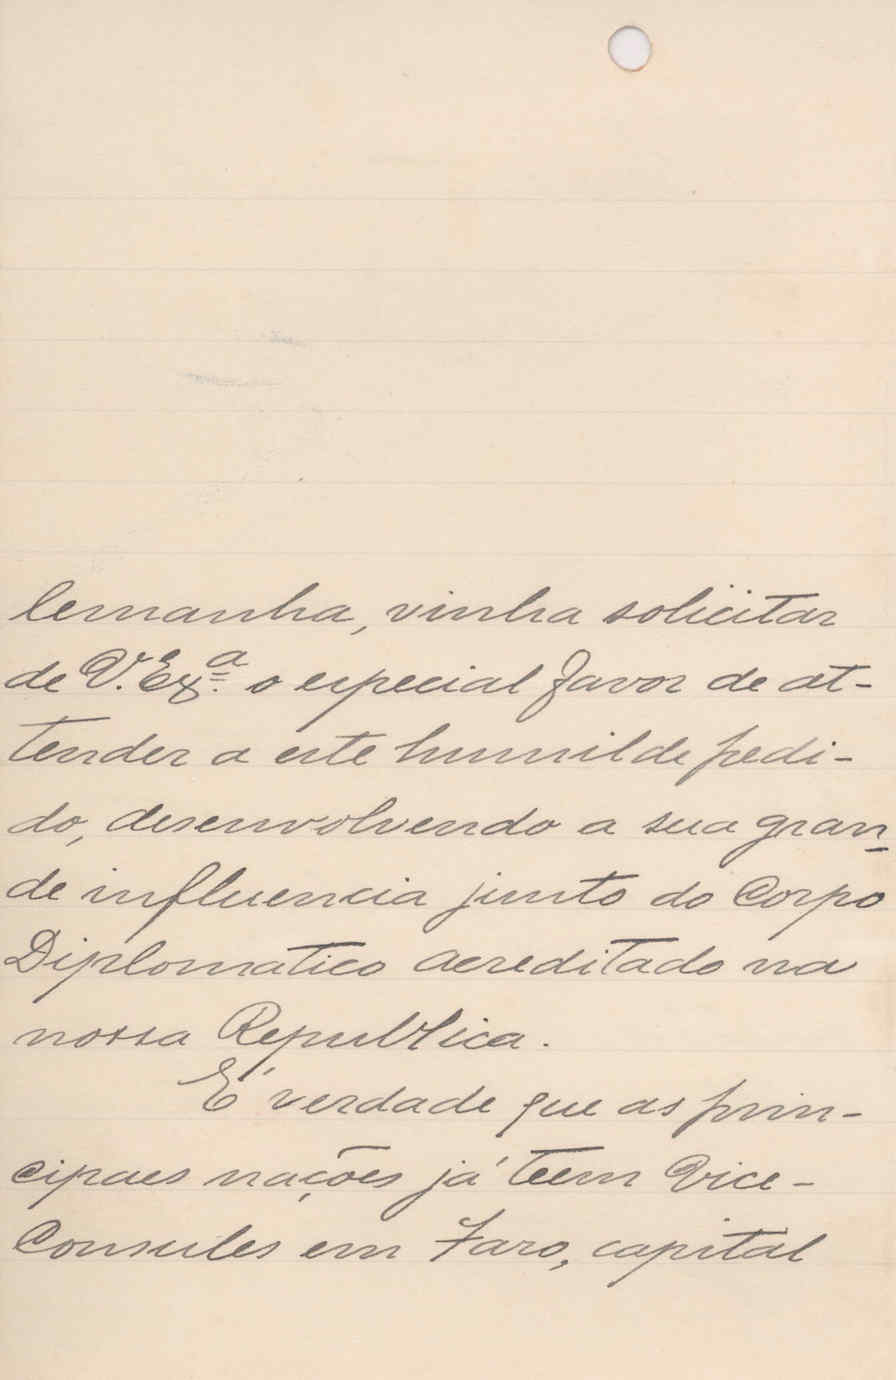 lemanha, vinha solicitar
de V. Exª. o especial favor de at-
tender a este humilde pedi-
do, desenvolvendo a sua gran-
de influencia junto do Corpo
Diplomatico acreditado na
nossa Republica.
É verdade que as prin-
cipaes nações já teem Vice-
Consules em Faro, capital